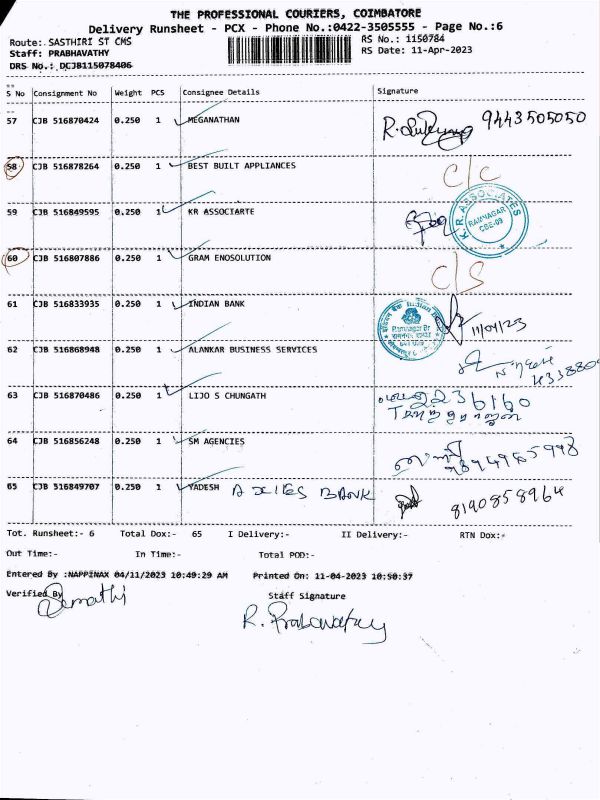 THE PROFESSIONAL COURIERS, COIMBATORE
Delivery Runsheet - PCX - Phone No.:0422-3505555 - Page No.:6
Route: SASTHIRI ST CMS RS No.: 1150784
Staff: PRABHAVATHY RS Date: 11-Apr-2023
DRS No.: DCJB115078406
S No Consignment No Weight PCS Consignee Details Signature
57 CJB 516870424 0.250 1 MEGANATHAN 9443505050
58 CJB 516878264 0.250 1 BEST BUILT APPLIANCES C/C
59 CJB 516849595 0.250 1 KR ASSOCIARTE K.R. ASSOCIATES RAMNAGAR CBE-09
60 CJB 516807886 0.250 1 GRAM ENOSOLUTION C/S
61 CJB 516833935 0.250 1 INDIAN BANK Indian Ramnagar Br 11/04/23
62 CJB 516868948 0.250 1 ALANKAR BUSINESS SERVICES
63 CJB 516870486 0.250 1 LIJO S CHUNGATH 2236160
64 CJB 516856248 0.250 1 SM AGENCIES
65 CJB 516849707 0.250 1 YADESH AXIES BANK 8190858964
Tot. Runsheet:- 6 Total Dox:- 65 I Delivery:- II Delivery:- RTN Dox:-
Out Time:- In Time:- Total POD:-
Entered By :NAPPINAX 04/11/2023 10:49:29 AM Printed On: 11-04-2023 10:50:37
Verified By Staff Signature
R. Prabavathy